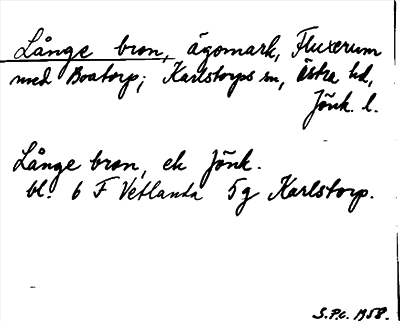 Långe bron, ägomark, Fluxerum
med Boatorp; Karlstorps sn, Östra hd,
Jönk. l.
Långe bron, ek Jönk.
bl. 6 F Vetlanda 5g Karlstorp.
S.P.C. 1958.